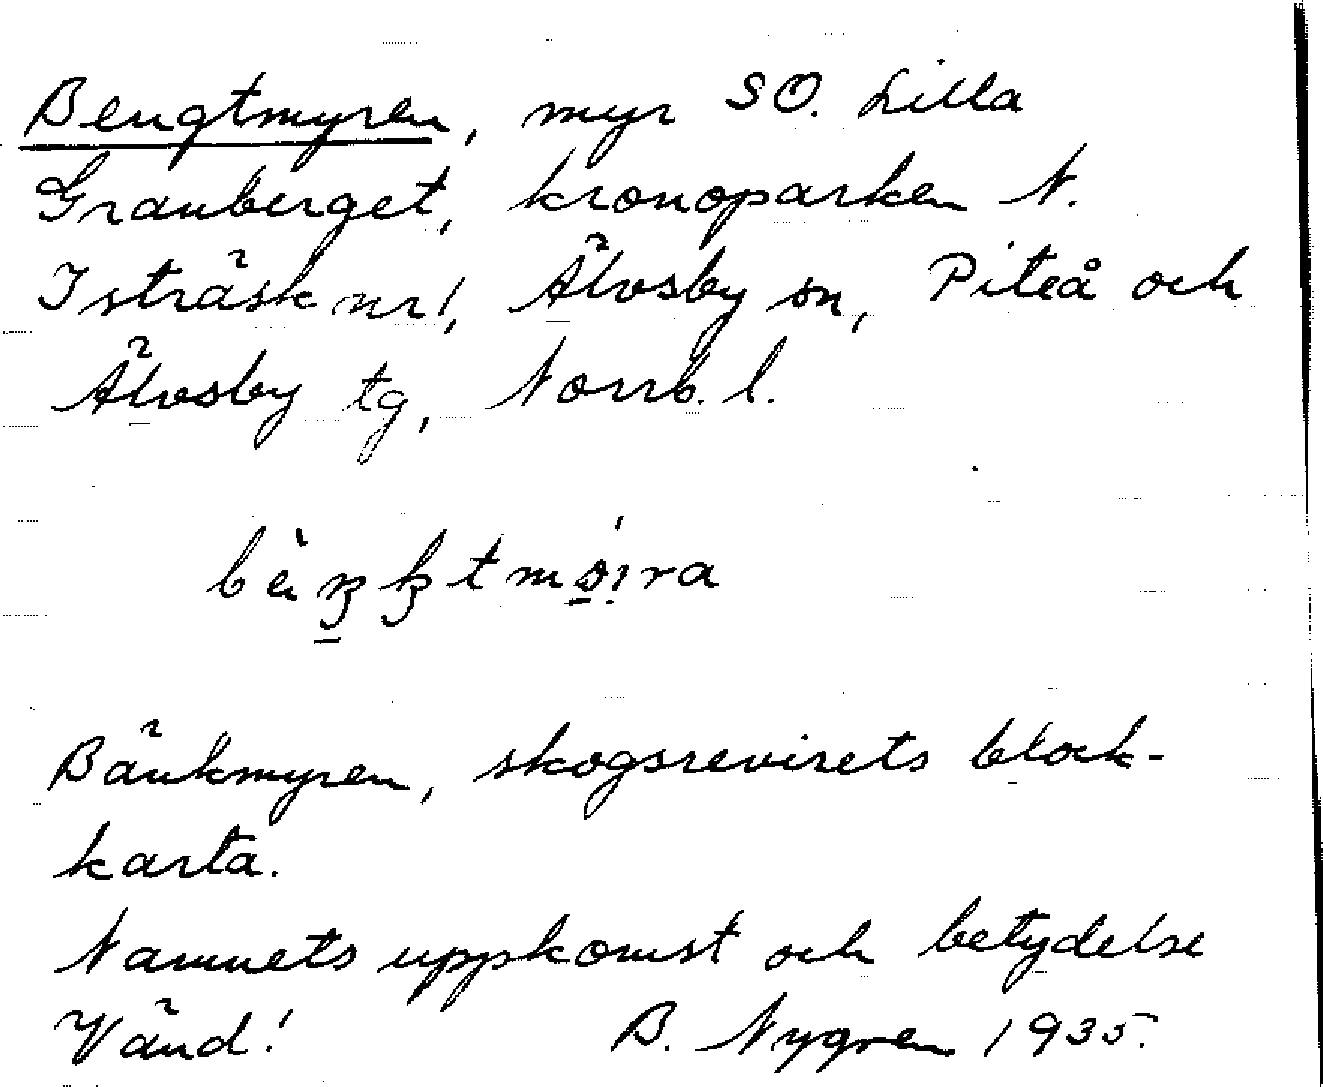 Bengtmyren, myr SO. Lilla
Granberget, kronoparken N.
Isträsk nr 1, Älvsby sn, Piteå och
Älvsby tg, Norrb. l.
Bänkmyren, skogsrevirets block-
karta.
Namnets uppkomst och betydelse
Vänd! B. Nygren 1935.